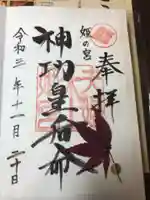 奉拝
姫の宮
神功皇后命
令和三年十一月二十日